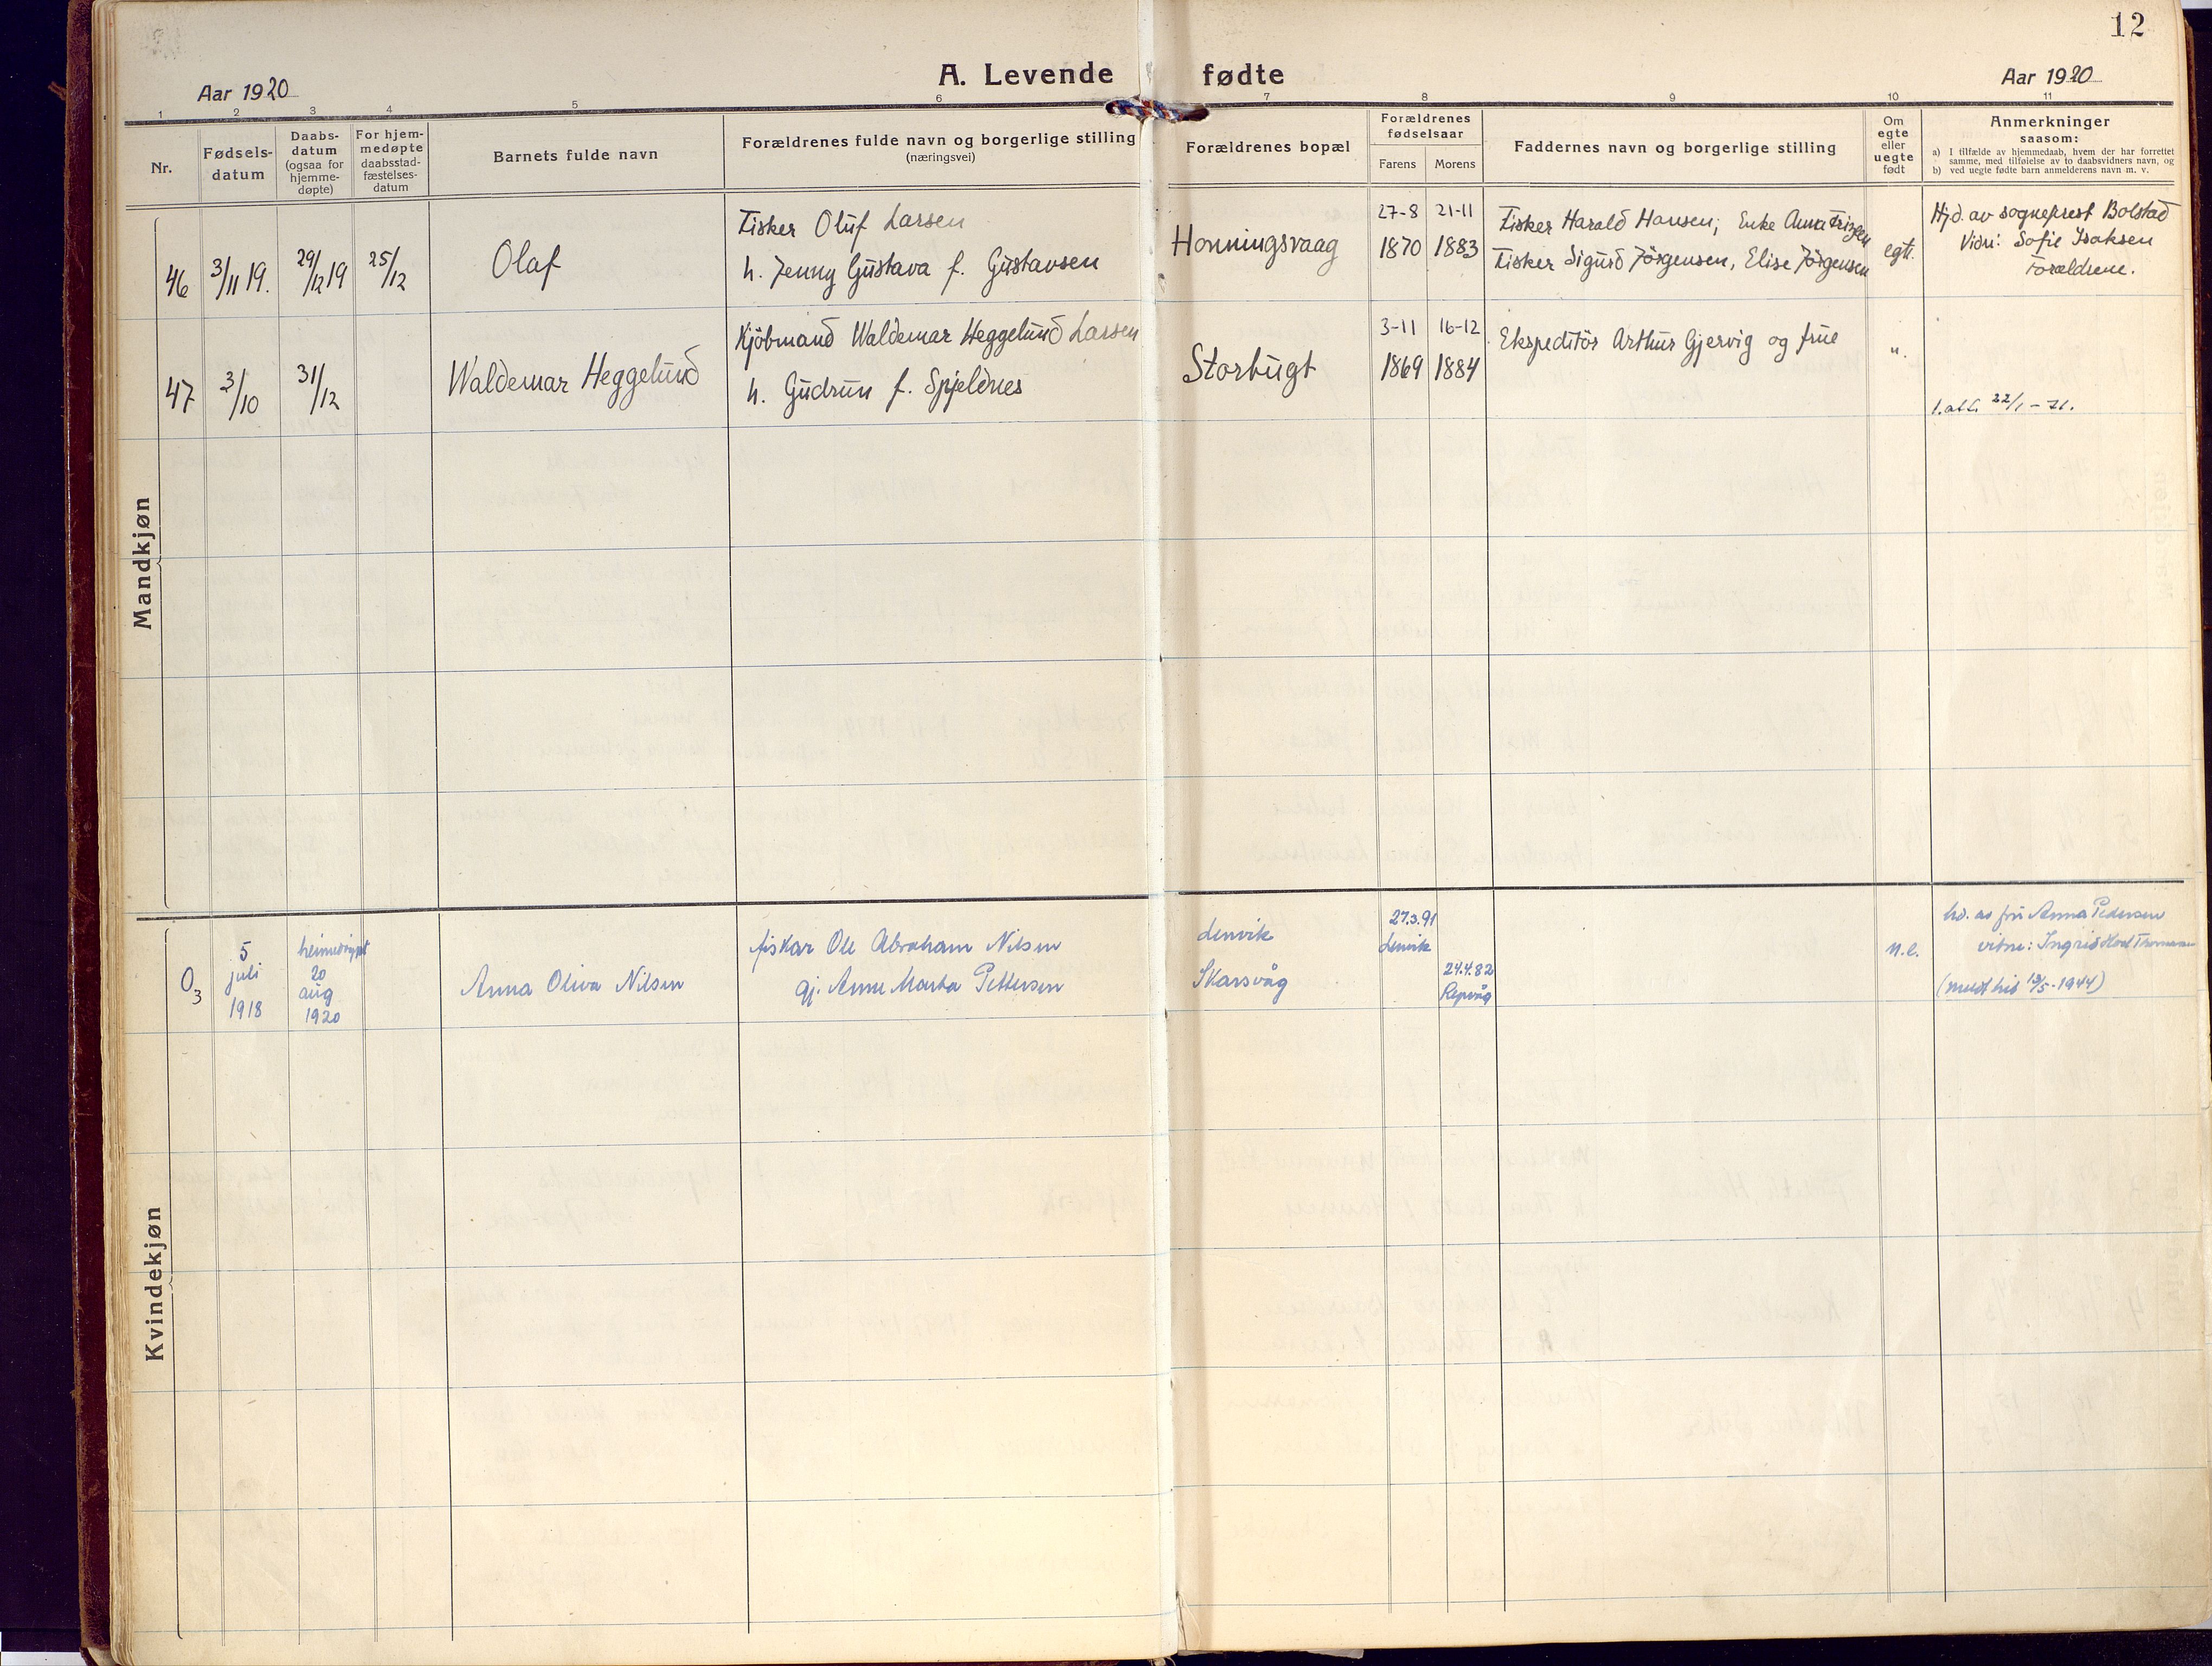 12
A. Levende fødte
Aar 1920
Aar 1920
1 2 3 4 5 6 7 8 9 10 11
Nr.
Fødsels-
datum
Daabs-
datum
(ogsaa for
hjemme-
døpte)
For hjem-
medøpte
daabsstad-
fæstelses-
datum
Barnets fulde navn
Forældrenes fulde navn og borgerlige stilling
(næringsvei)
Forældrenes bopæl
Forældrenes
fødselsaar
Farens Morens
Faddernes navn og borgerlige stilling
Om
egte
eller
uegte
født
Anmerkninger
saasom:
a) I tilfælde av hjemmedaab, hvem der har forrettet
samme, med tilføielse av to daabsvidners navn, og
b) ved uegte fødte barn anmelderens navn m. v.
Mandkjøn
46
3/11 19.
29/12 19
25/12
Olaf
Fisker Oluf Larsen
h. Jenny Gustava f. Gustavsen
Honningsvaag
27-8
1870
21-11
1883
Fisker Harald Hansen; Enke Anna
Fisker Sigurd Jörgensen, Elise Jörgensen
egt.
Hjd. av sogneprest Bolstad
Vidn: Sofie Isaksen
Forældrene.
47
3/10
31/12
Waldemar Heggelund
Kjöbmand Waldemar Heggelund Larsen
h. Gudrun f. Spjeldnes
Storbugt
3-11
1869
16-12
1884
Ekspeditör Arthur Gjervig og frue
".
22/1 -
Kvindekjøn
03
5
juli
1918
20
aug
1920
Anna Oliva Nilsen
fiskar Ole Abraham Nilsen
gj. Anne Marta Pettersen
Lenvik
Skarsvåg
27.3.91
Lenvik
24.4.82
Repvåg
n.e.
hd. av fru Anna Pedersen
vitne: Ingrid
(meldt hit 13/5-1944)